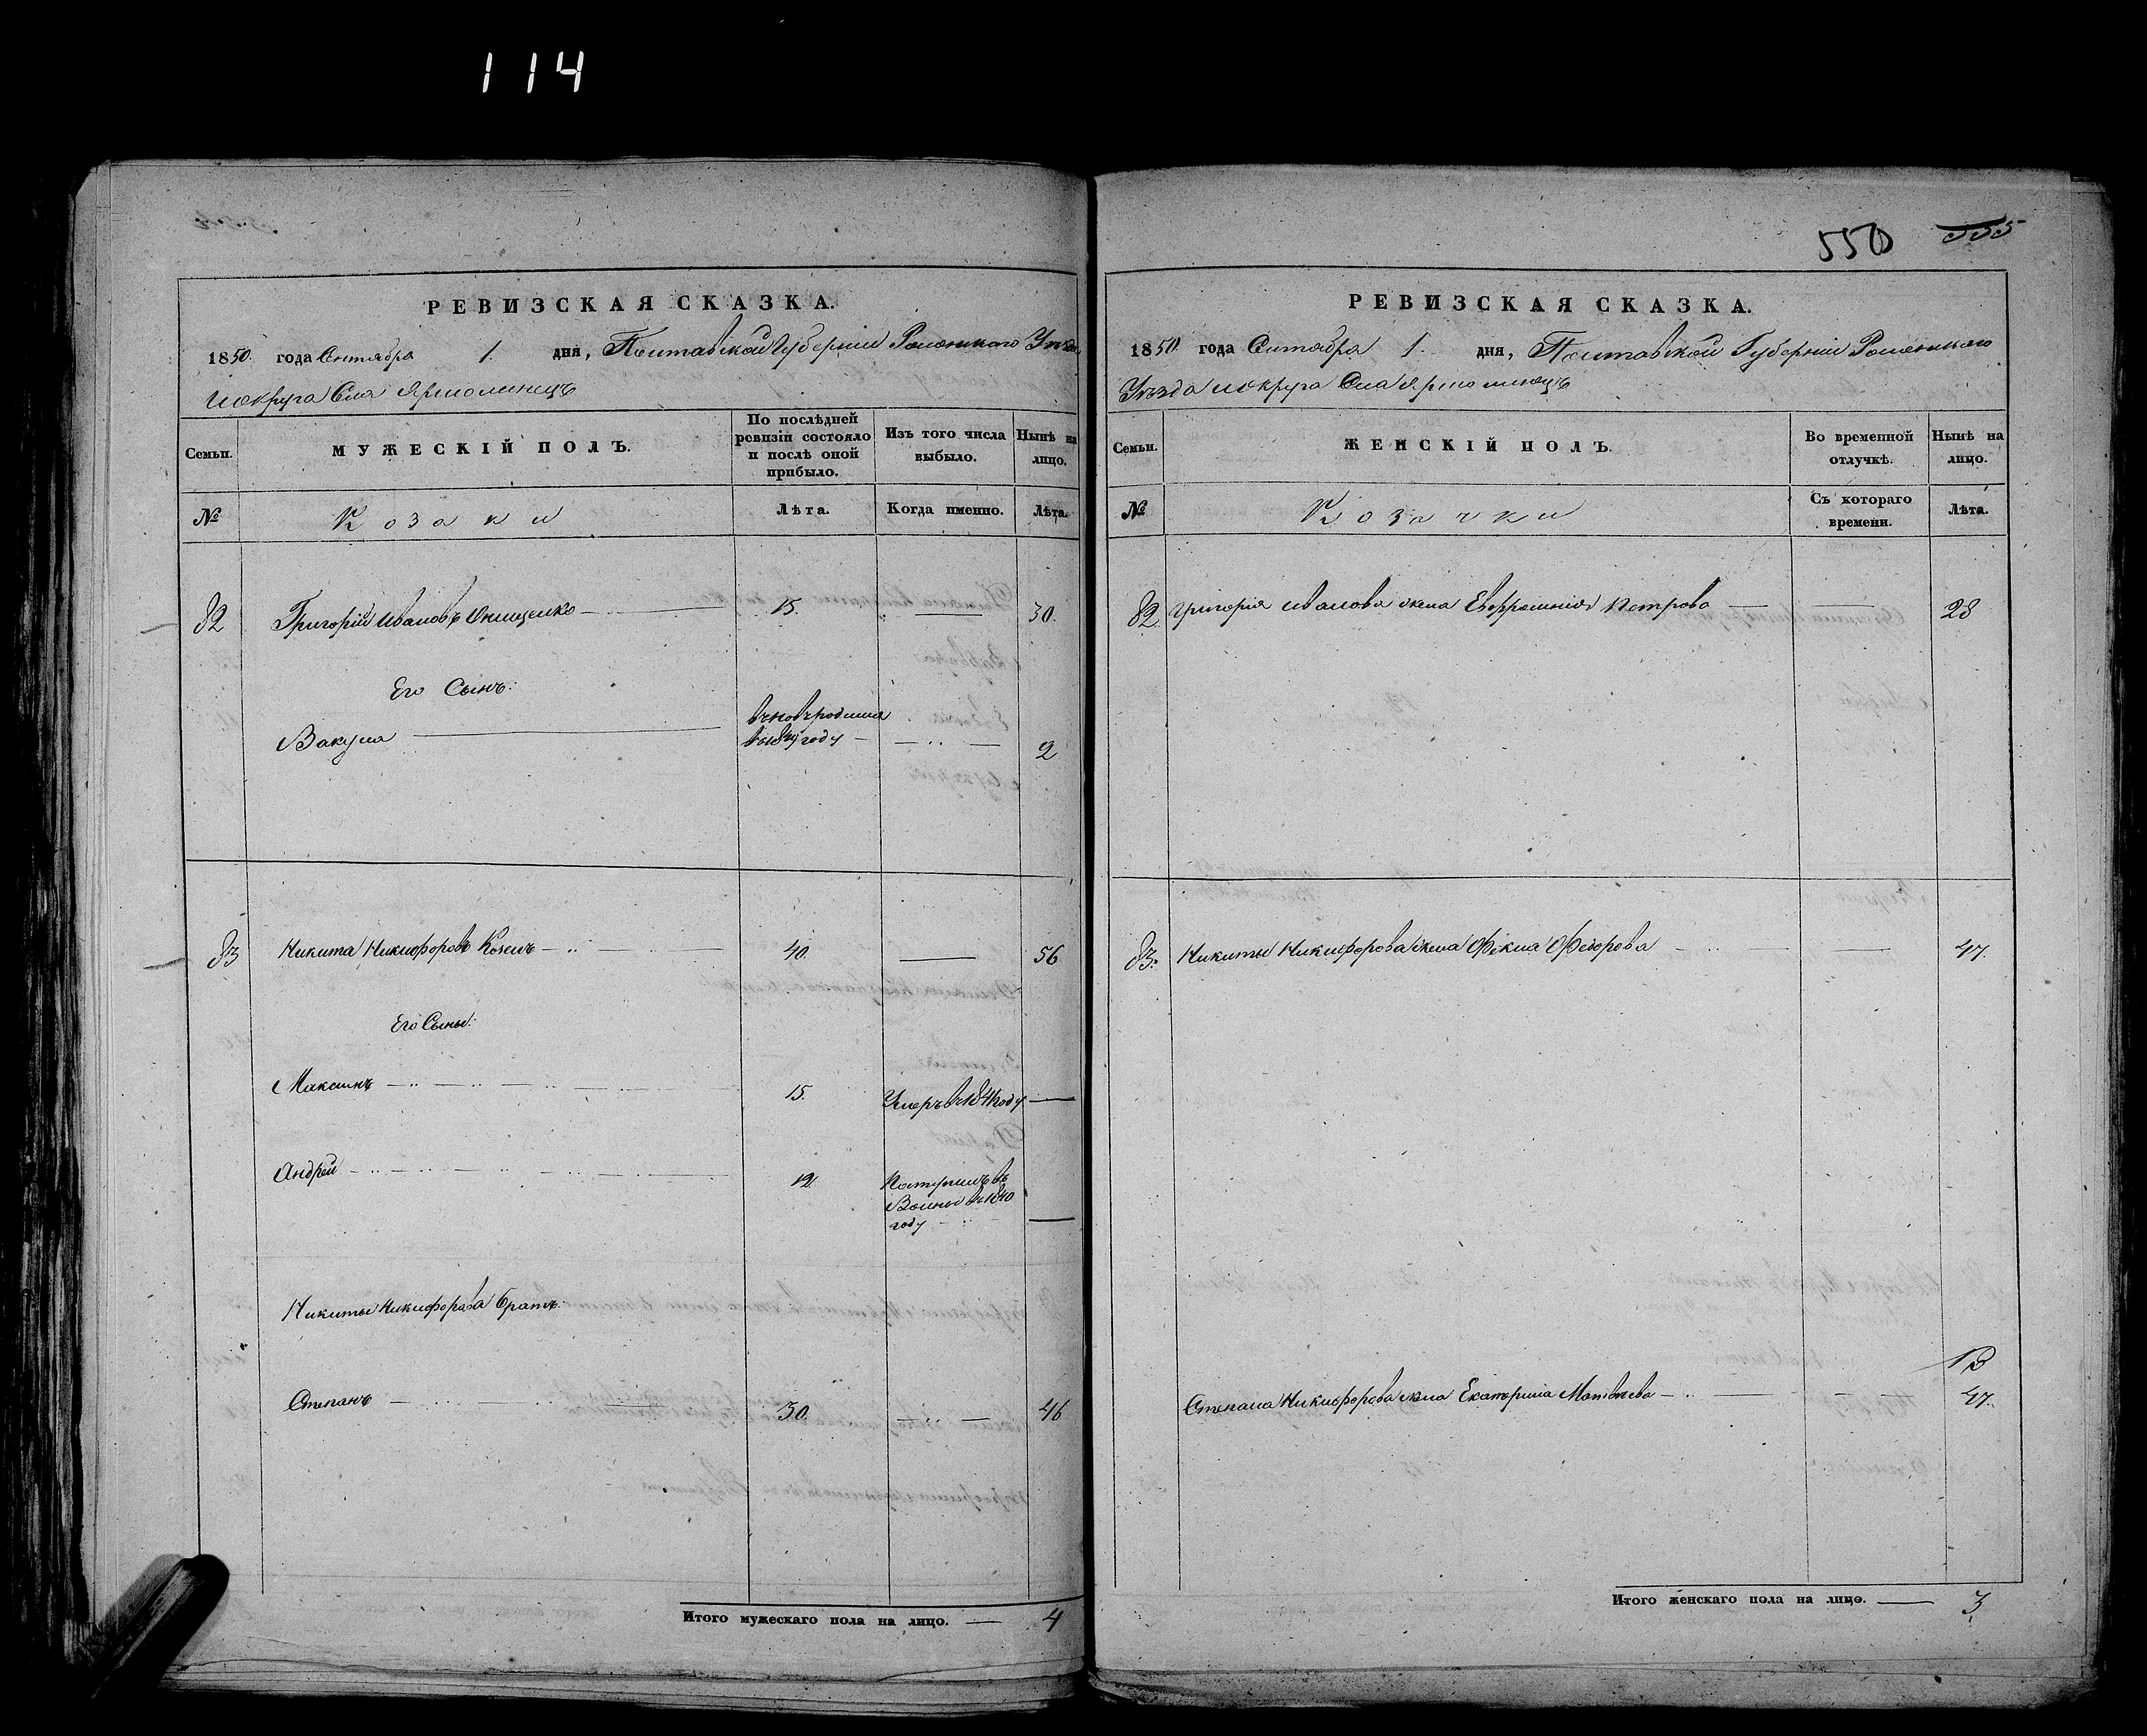 114
РЕВИЗСКАЯ СКАЗКА.
1850. года Сентября 1. дня, Полтавской Губерніи Роменского Уезда
и округа Села Ярмолинецъ
Семьи.
МУЖЕСКІЙ ПОЛЪ.
По послѣдней ревизіи состояло и послѣ оной прибыло.
Изъ того числа выбыло.
Нынѣ на лицо.
№
Козаки
Лѣта.
Когда именно.
Лѣта.
82
Григорій Ивановъ Онищенко
15.
30.
Его Сынъ:
Вакула
году
2
83
Никита Никифоровъ
40.
56
Его Сыны:
Максимъ
15.
Умеръ въ 1841 году
Андрей
12.
Поступилъ въ
Воины въ 1840
году
Никиты Никифорова братъ:
Степанъ
30.
46
Итого мужескаго пола на лицо. — 4
550 555
РЕВИЗСКАЯ СКАЗКА.
1850. года Сентября 1. дня, Полтавской Губерніи Роменского
Уезда и округа Села Ярмолинецъ
Семьи.
ЖЕНСКІЙ ПОЛЪ.
Во временной отлучкѣ.
Нынѣ на лицо.
№
Козачки
Съ котораго времени.
Лѣта.
82.
Григорія Иванова жена Евфросинія Петрова
28
83.
Никиты Никифорова жена Фекла Федорова
47.
Степана Никифорова жена Екатерина Матвѣева
47.
Итого женскаго пола на лицо. — 3